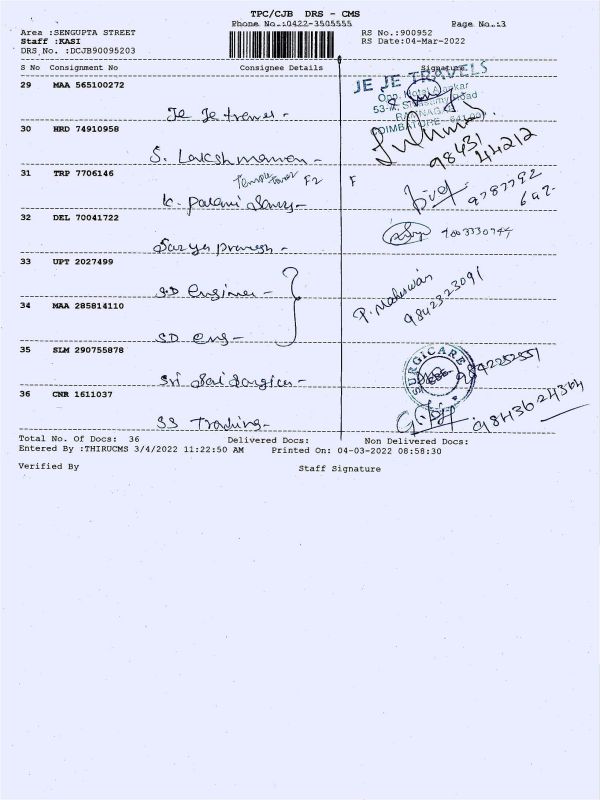 TPC/CJB DRS - CMS
Phone No.:0422-3505555 Page No.:3
Area :SENGUPTA STREET RS No.:900952
Staff :KASI RS Date:04-Mar-2022
DRS No. :DCJB90095203
S No Consignment No Consignee Details Signature
29 MAA 565100272
JE JE TRAVELS
Je Je travel -
30 HRD 74910958
COIMBATORE
S. Lakshmanan - 98431 44212
31 TRP 7706146
F2 F
K. Palani 9787792
692
32 DEL 70041722
7003330744
33 UPT 2027499
SD Engineer - P. Maheswan
9842323091
34 MAA 285814110
SD eng -
35 SLM 290755878
SURGICARE
Sri Sai Surgicare -
36 CNR 1611037
SS Trading - 9843624364
Total No. Of Docs: 36 Delivered Docs: Non Delivered Docs:
Entered By :THIRUCMS 3/4/2022 11:22:50 AM Printed On: 04-03-2022 08:58:30
Verified By Staff Signature